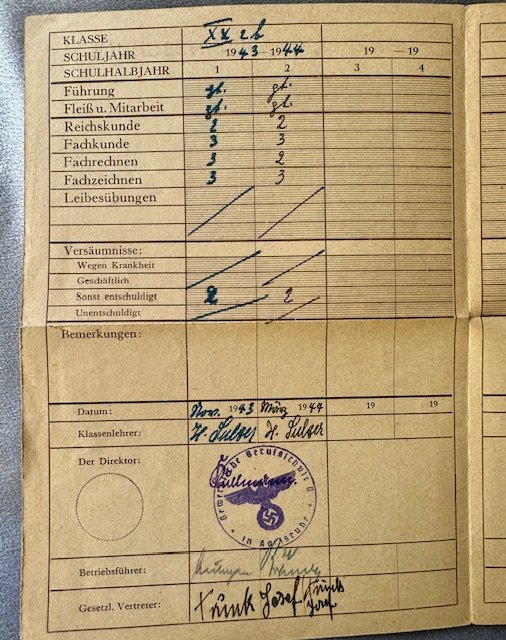 KLASSE XX 2b
SCHULJAHR 1943 - 1944 19 — 19
SCHULHALBJAHR 1 2 3 4
Führung gt. gt.
Fleiß u. Mitarbeit gt. gt.
Reichskunde 2 2
Fachkunde 3 3
Fachrechnen 3 2
Fachzeichnen 3 3
Leibesübungen
Versäumnisse:
Wegen Krankheit
Geschäftlich
Sonst entschuldigt 2 2
Unentschuldigt
Bemerkungen:
Datum: Nov. 1943 März 1944 19 19
Klassenlehrer: H. Sulzer H. Sulzer
Der Direktor:
Gewerbliche Berufsschule II
in Karlsruhe
Betriebsführer:
Gesetzl. Vertreter: Trunk Josef Trunk
Josef